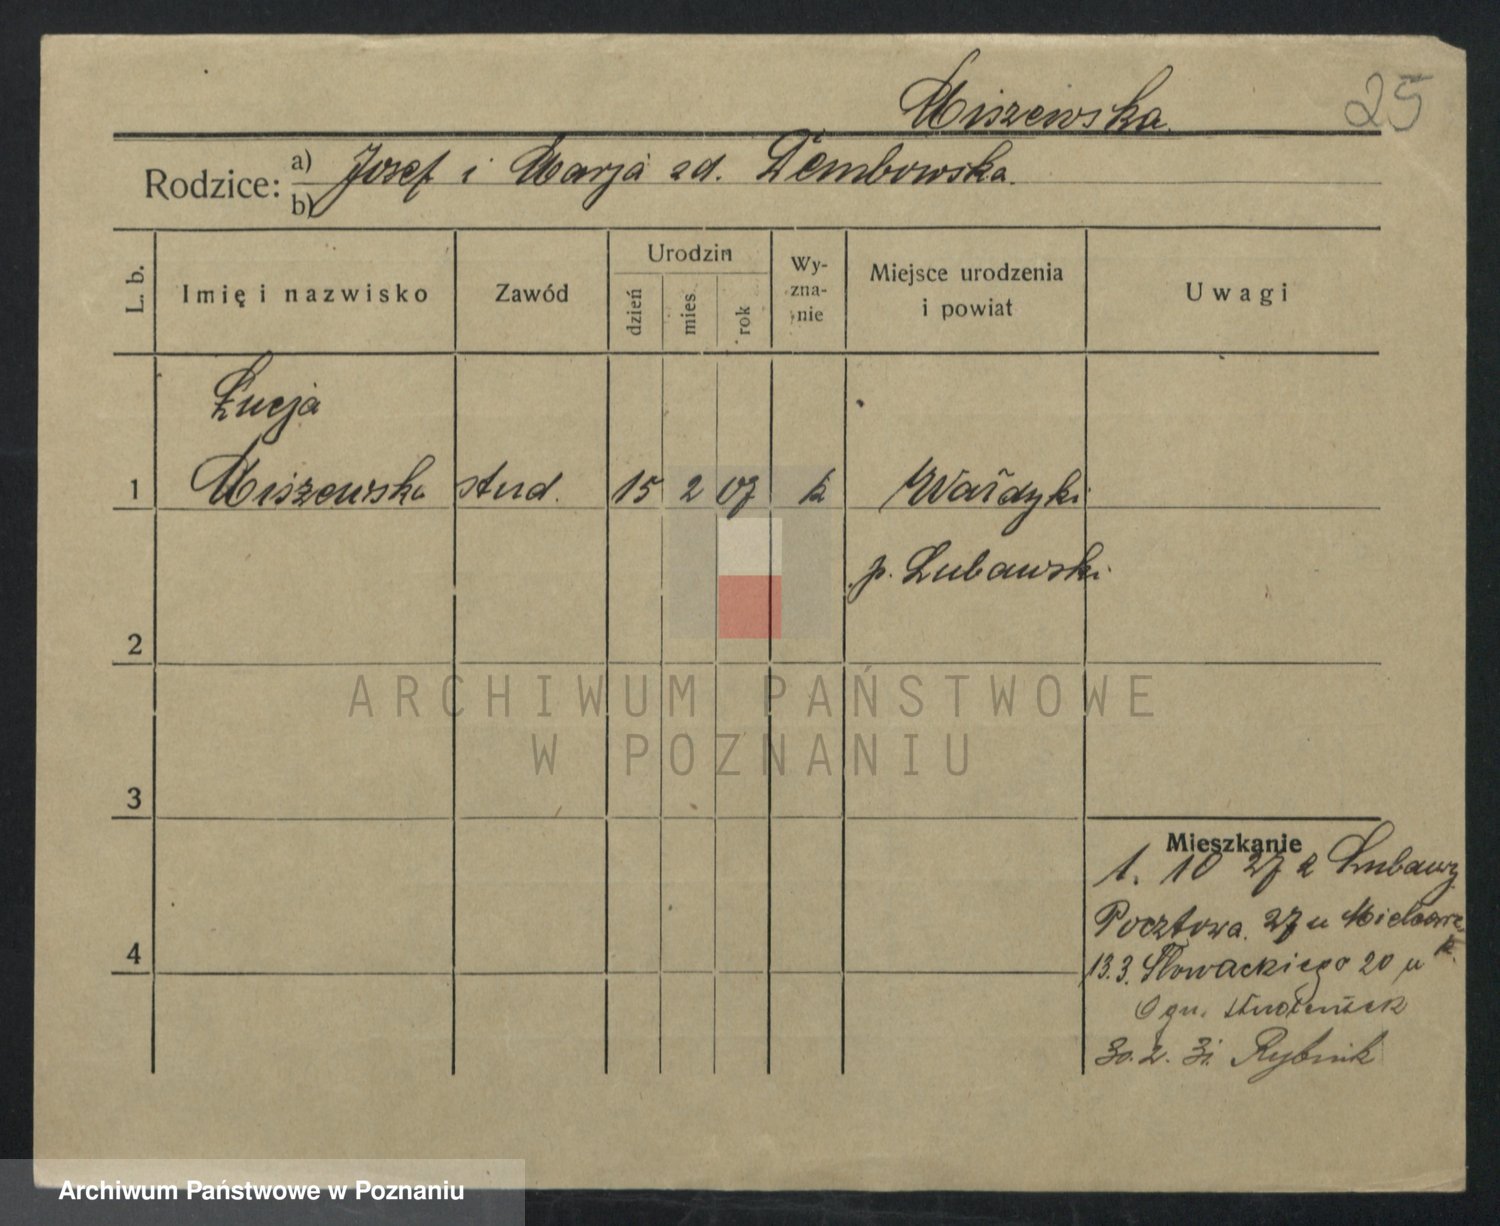 Miszewska
25
Rodzice: a) Józef i Marja zd. Dembowska.
b)
L. b.
Imię i nazwisko
Zawód
Urodzin
dzień
mies.
rok
Wy-
zna-
nie
Miejsce urodzenia
i powiat
Uwagi
Łucja
1 Miszewska stud. 15 2 07 k Wałdyki
p. Lubawski
2
3
4
Mieszkanie
1. 10 27 z Lubawy
Pocztowa 27 u
13.3. Słowackiego 20 u
Ogn.
30. 2. 31 Rybnik
ARCHIWUM PAŃSTWOWE
W POZNANIU
Archiwum Państwowe w Poznaniu